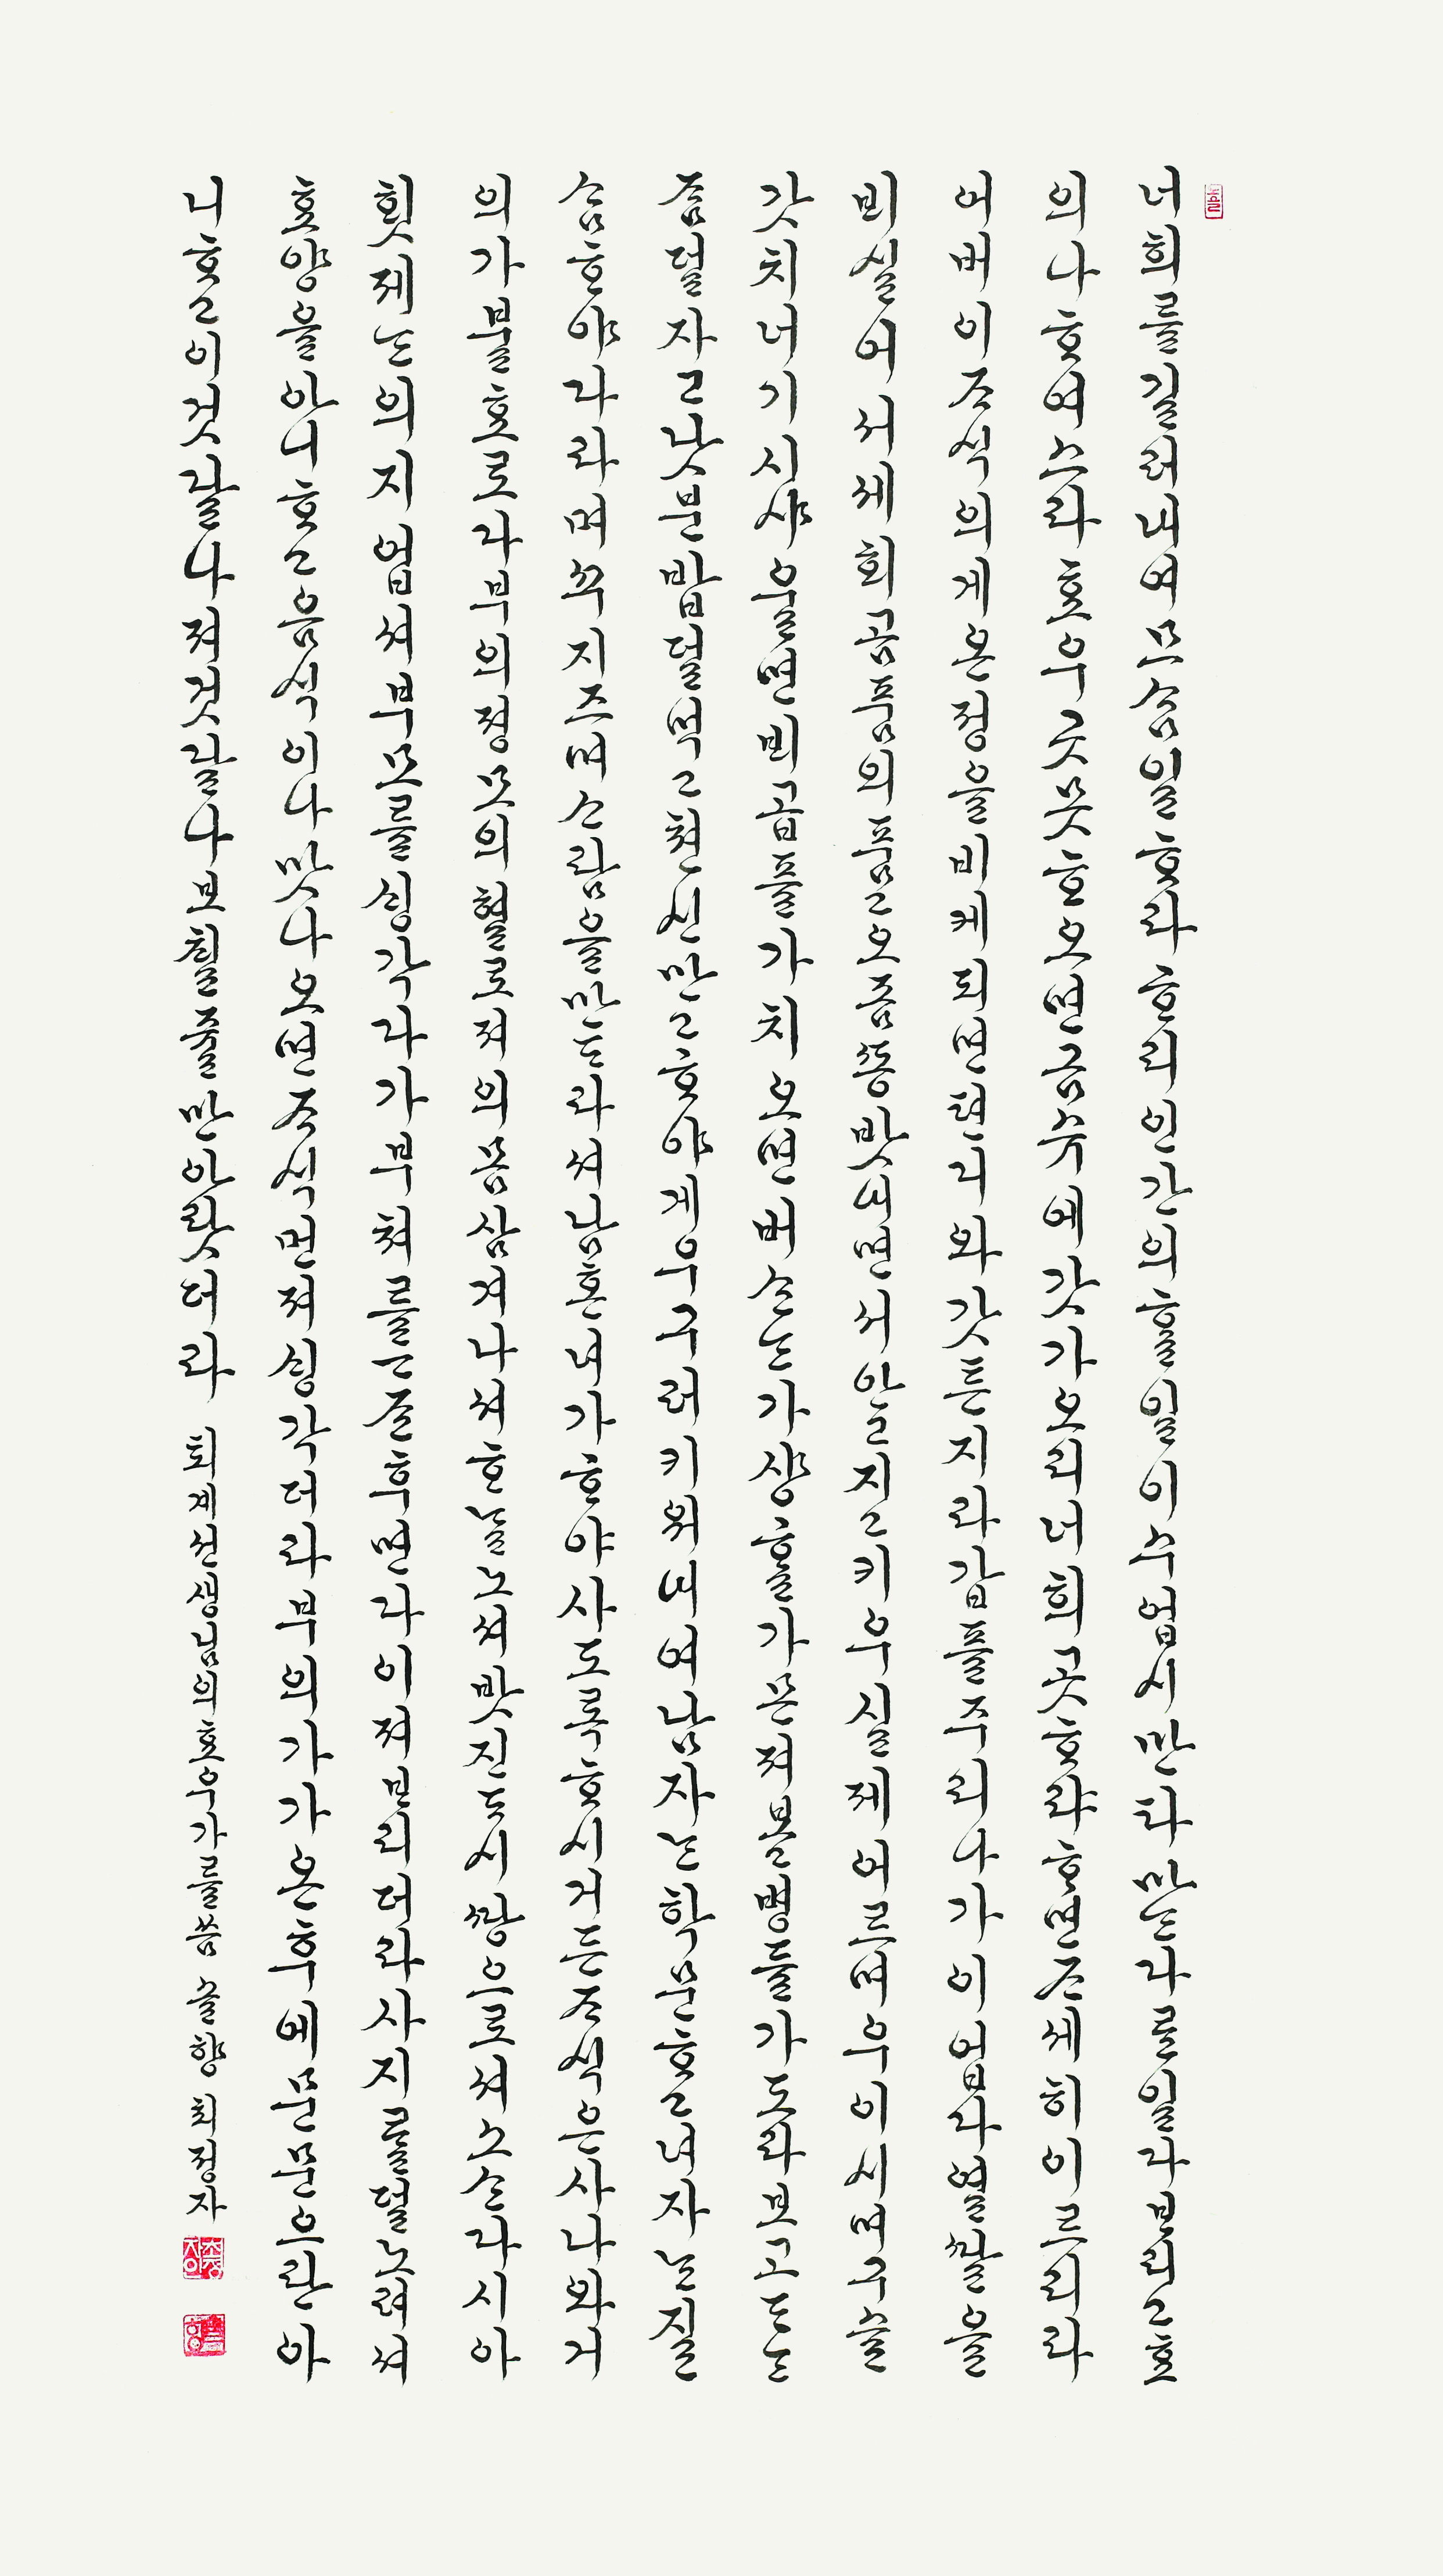 너희를길러ᄂᆡ여므ᄉᆞᆷ일ᄒᆞ라ᄒᆞ리인간의ᄒᆞᆯ일이수업시만타마ᄂᆞᆫ다른일다ᄇᆞ리고효
의나ᄒᆞ여스라효우곳못ᄒᆞ오면금수에갓가오리너희곳ᄒᆞ랴ᄒᆞ면ᄌᆞ세히이르리라
어버이ᄌᆞ식의게온졍을비케되면텬디와갓튼지라갑플주리나가이업다열ᄯᅡᆯ을
ᄇᆡ실어서세ᄒᆡ곰품의품고오좀ᄯᅩᆼ밧ᄂᆡ면서안ᄂᆞᆫ지고키우실제어르며우이시며구슬
갓치너기시샤울면ᄇᆡ곱플가치오면버ᄉᆞᆫᄂᆞᆫ가샹ᄒᆞᆯ가몬져볼병들가도라보고ᄃᆞᆫᄂᆞᆫ
좀덜자고낫분밥덜먹고쳔신만고ᄒᆞ야게우구러키워ᄂᆡ여남자ᄂᆞᆫ학문ᄒᆞ고녀자ᄂᆞᆫ질
ᄉᆞᆷᄒᆞ야다라며ᄭᅮ지즈며ᄉᆞ람을만ᄃᆞ라셔남혼녀가ᄒᆞ야사도록ᄒᆞ시거든ᄌᆞ식은사나와거
의가불효로다부의졍모의혈로져의몸삼겨나셔ᄒᆞᄂᆞᆯ노셔밧진ᄃᆞ시ᄯᅡᆼ으로셔소ᄉᆞᆫ다시아
횟제ᄂᆞᆫ의지업셔부모를ᄉᆡᆼ각다가부쳐를ᄀᆞᄌᆞᆫ후면다이져ᄇᆞ리더라사지를덜노려셔
효양을아니ᄒᆞ고음식이나맛나오면ᄌᆞ식먼져ᄉᆡᆼ각더라부의가가온후에문문으란아
니ᄒᆞ고이것달나져것달나보ᄎᆡᆯ줄만아랏더라 퇴계선생님의효우가를씀 솔향 최정자